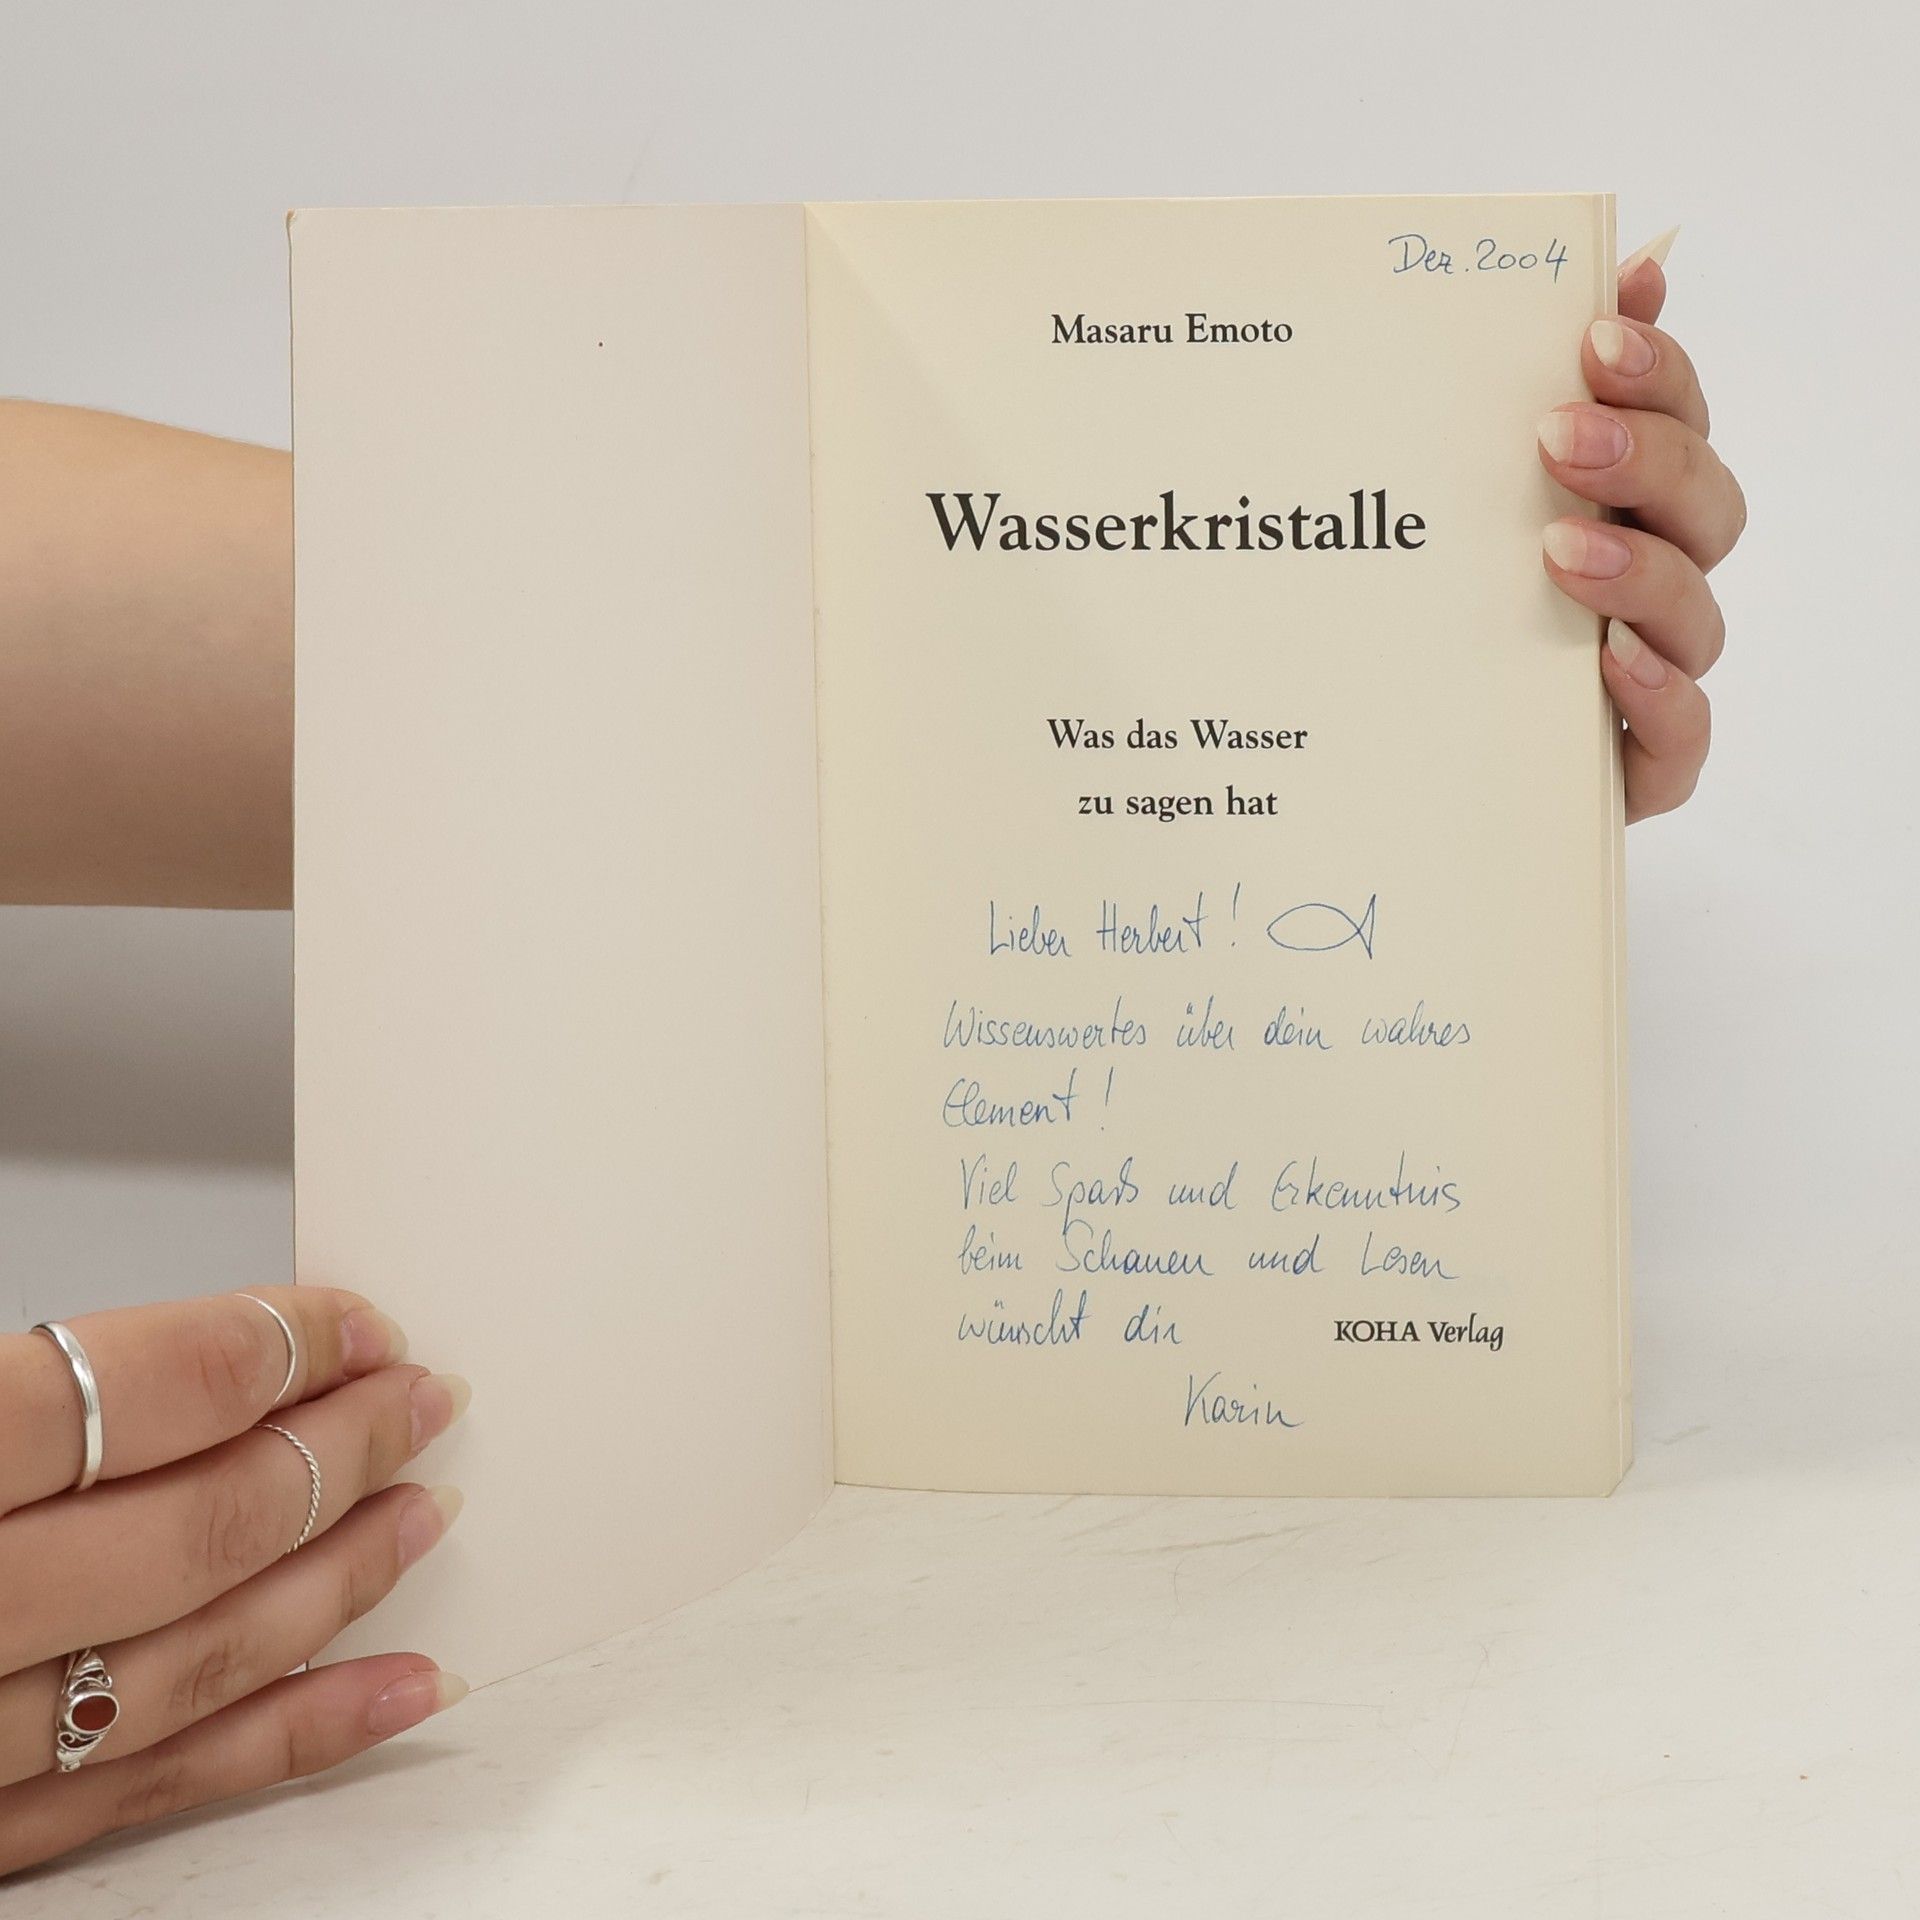 Dez. 2004
Masaru Emoto
Wasserkristalle
Was das Wasser
zu sagen hat
Lieber Herbert!
Wissenswertes über dein wahres
Element!
Viel Spaß und Erkenntnis
beim Schauen und Lesen
wünscht dir
KOHA Verlag
Karin